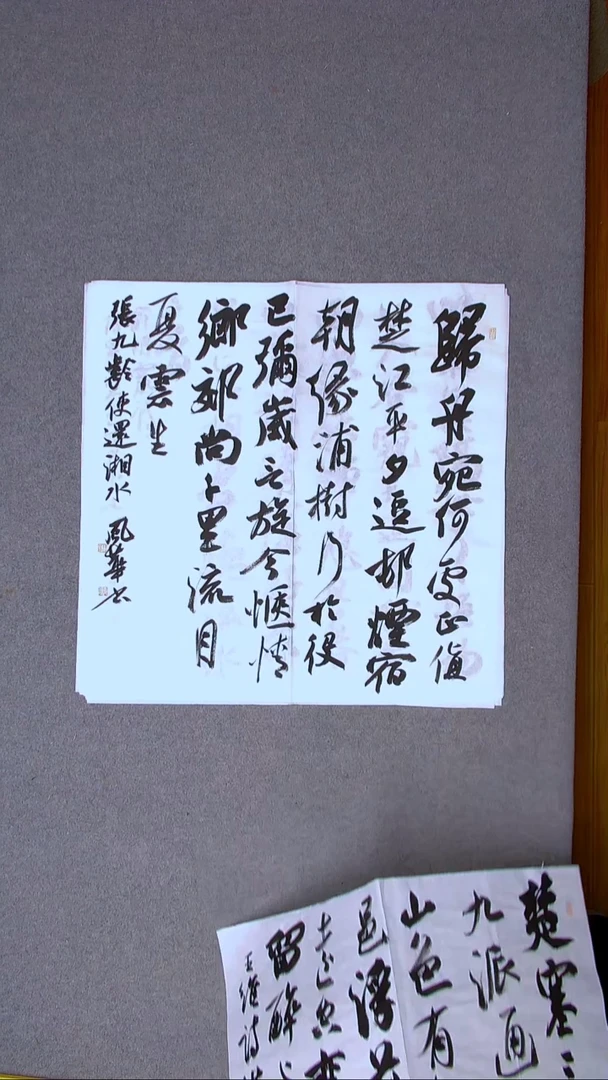 歸舟宛何處正值
楚江平夕逗邨煙宿
朝緣浦樹行於役
已彌歲言旋今愜情
鄉郊尚千里流目
夏雲生
張九齡使還湘水 風華書
楚塞三
九派通
山色有
邑浮前
留醉與
王維詩